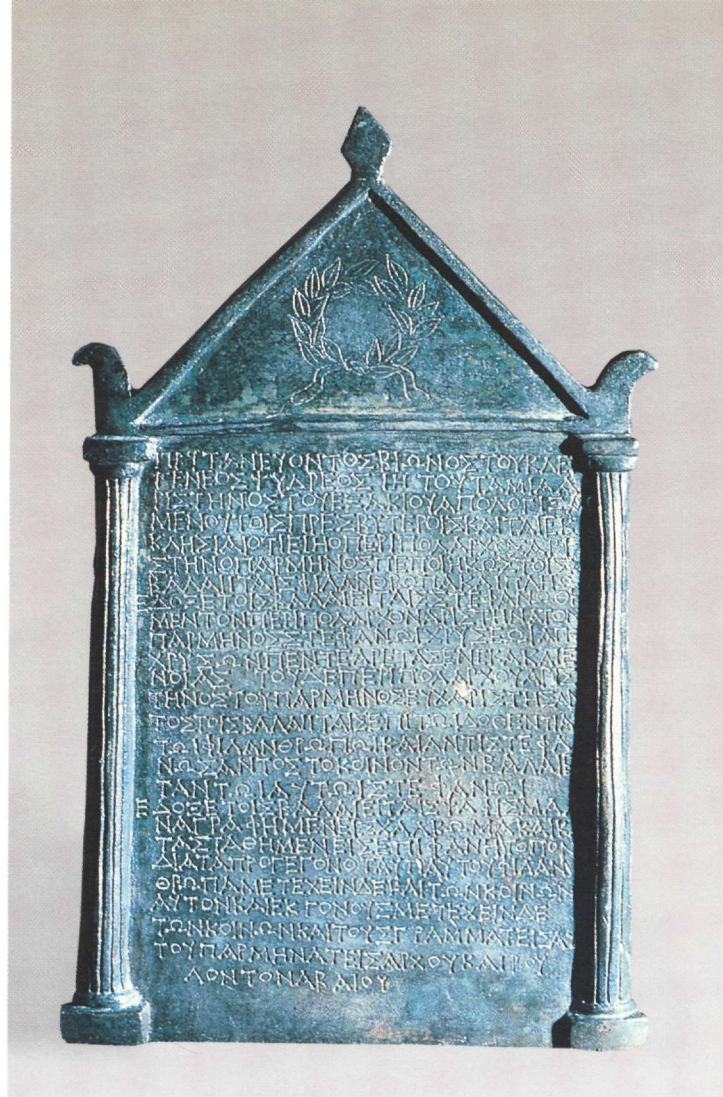 ΠΡΥΤΑΝΕΥΟΝΤΟΣΒΙΩΝΟΣΤΟΥΚΛΕ
ΙΓΕΝΕΟΣΓΥΔΡΕΟΣ ΙΗ ΤΟΥΤΑΜΙΑ
ΡΙΣΤΗΝΟΣΤΟΥΕΞΑΚΙΟΥΑΠΟΛΟΓΙΞΑ
ΜΕΝΟΥΤΟΙΣΠΡΕΣΒΥΤΕΡΟΙΣΚΑΙΤΑΙΕΚ
ΚΛΗΣΙΑΙΟΤΙΕΠΗΟΠΕΡΙΠΟΛΑΡΧΑΣΑΡΙ
ΣΤΗΝΟΠΑΡΜΗΝΟΣΠΕΠΟΙΗΚΩΣΤΟΙΣ
ΒΑΛΛΑΙΤΑΙΣΦΙΛΑΝΘΡΩΠΑΚΑΙ
ΕΔΟΞΕΤΟΙΣΒΑΛΛΑΙΕΙΤΑΙΣΣΤΕΦΑΝΩΣ
ΜΕΝΤΟΝΠΕΡΙΠΟΛΑΡΧΟΝΑΡΙΣΤΗΝΑΤΟΥ
ΠΑΡΜΗΝΟΣΣΤΕΦΑΝΩΙΧΡΥΣΕΩΙΑΠΟ
ΧΡΥΣΩΝΠΕΝΤΕΑΡΕΤΑΣΕΝΕΚΑΚΑΙΕΥ
ΝΟΙΑΣ ΤΟΥΔΕΠΕΡΙΠΟΛΑΡΧΟΥΑΡΙΣ
ΤΗΝΟΣΤΟΥΠΑΡΜΗΝΟΣΕΥΧΑΡΙΣΤΗΣΑΝ
ΤΟΣΤΟΙΣΒΑΛΛΑΙΤΑΙΣΕΠΙΤΩΙΔΟΘΕΝΤΙΑΥ
ΤΩΙΦΙΛΑΝΘΡΩΠΩΙΚΑΙΑΝΤΙΣΤΕΦΑ
ΝΩΣΑΝΤΟΣΤΟΚΟΙΝΟΝΤΩΝΒΑΛΛΑΙΕ
ΤΑΝΤΩΙΑΥΤΩΙΣΤΕΦΑΝΩΙ
ΕΔΟΞΕΤΟΙΣΒΑΛΛΑΙΕΙΤΑΙΣ
ΝΑΓΡΑΦΗΜΕΝΕΙΣΧΑΛΚΩΜΑΚΑΙ
ΤΑΣΤΑΘΗΜΕΝΕΙΣΕΠΙΦΑΝΗΤΟΠΟΝ
ΔΙΑΤΑΠΡΟΓΕΓΟΝΟΤΑΥΠΑΥΤΟΥΦΙΛΑΝ
ΘΡΩΠΙΑΜΕΤΕΧΕΙΝΔΕΚΑΙΤΩΝΚΟΙΝΩΝ
ΑΥΤΟΝΚΑΙΕΚΓΟΝΟΥΣΜΕΤΕΧΕΙΝΔΕ
ΤΩΝΚΟΙΝΩΝΚΑΙΤΟΥΣΓΡΑΜΜΑΤΕΙΣΑΣ
ΤΟΥΠΑΡΜΗΝΑΤΕΙΣΑΙΧΟΥΚΑΙΡΟΥ
ΛΟΝΤΟΝΑΒΑΙΟΥ